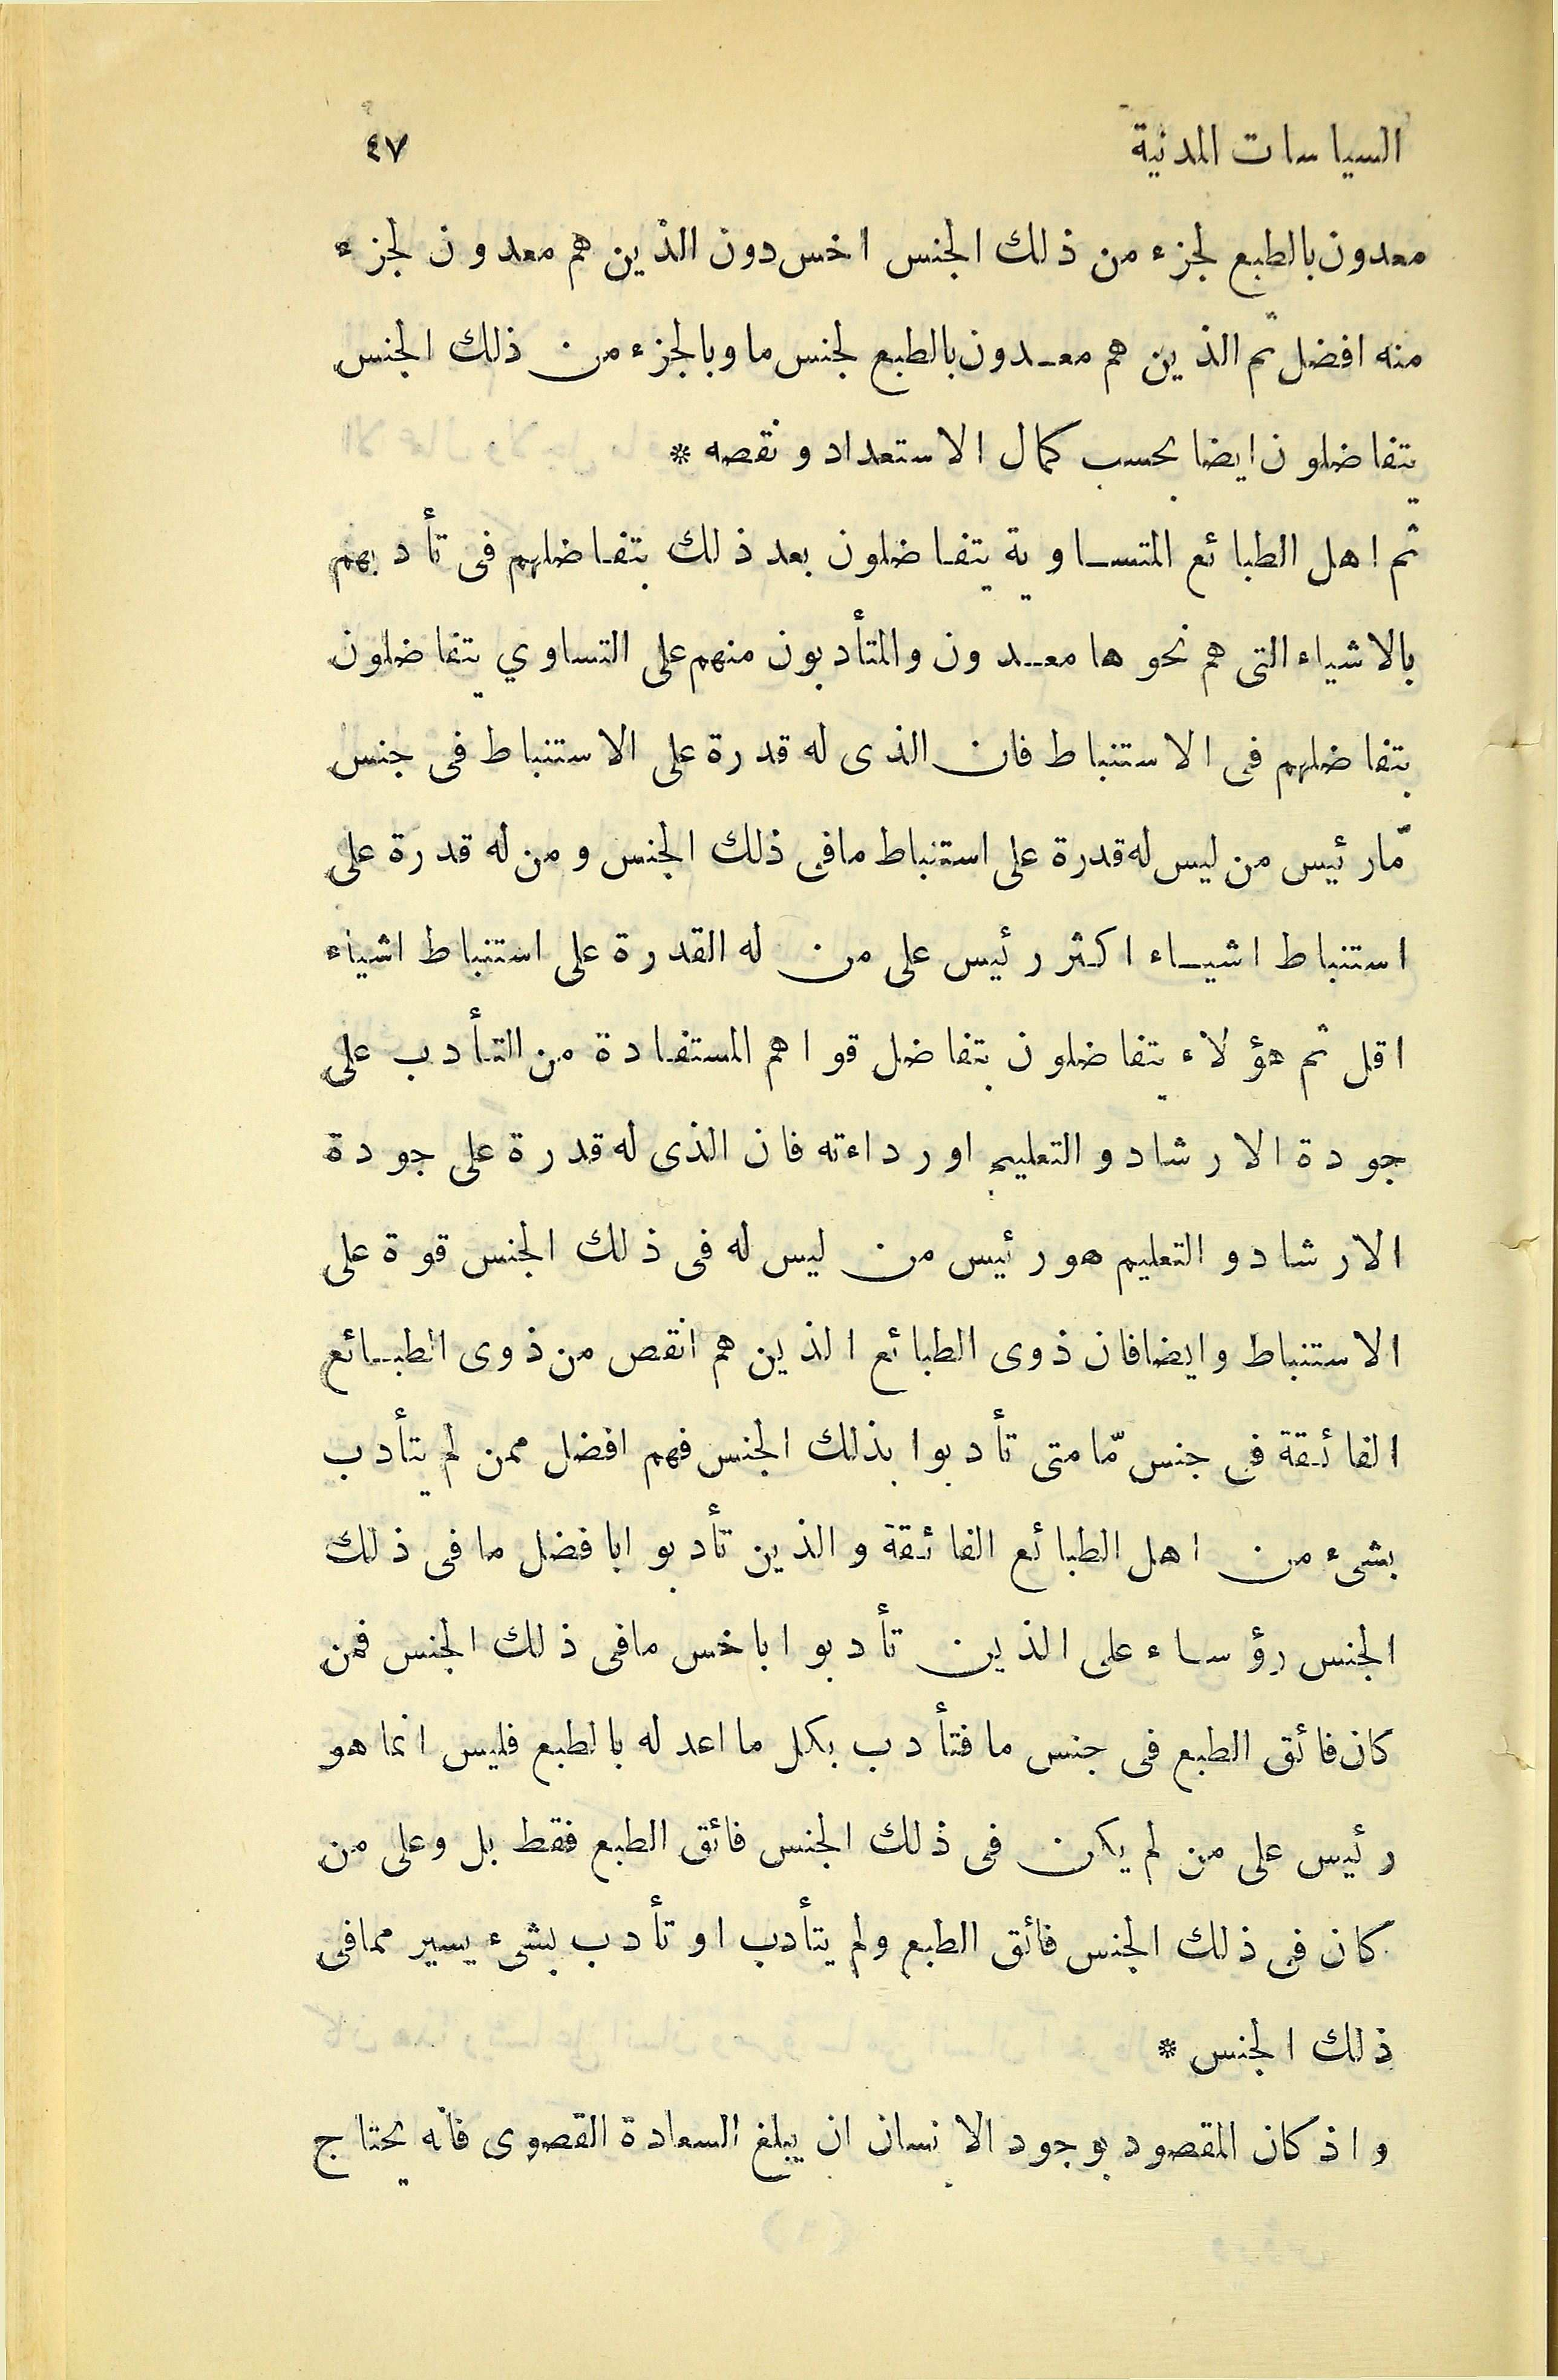 السياسات المدنية ٤٧
معدون بالطبع لجزء من ذلك الجنس اخس دون الذين هم معدون لجزء
منه افضل ثم الذين هم معدون بالطبع لجنس ما وبالجزء من ذلك الجنس
يتفاضلون ايضا بحسب كمال الاستعداد ونقصه *
ثم اهل الطبائع المتساوية يتفاضلون بعد ذلك بتفاضلهم فى تأدبهم
بالاشياء التى هم نحوها معدون والمتأدبون منهم على التساوي يتفاضلون
بتفاضلهم فى الاستنباط فان الذى له قدرة على الاستنباط فى جنس
مّا رئيس من ليس له قدرة على استنباط مافى ذلك الجنس ومن له قدرة على
استنباط اشياء اكثر رئيس على من له القدرة على استنباط اشياء
اقل ثم هؤلاء يتفاضلون بتفاضل قواهم المستفادة من التأدب على
جودة الارشاد والتعليم اورداءته فان الذى له قدرة على جودة
الارشاد والتعليم هو رئيس من ليس له فى ذلك الجنس قوة على
الاستنباط وايضا فان ذوى الطبائع الذين هم انقص من ذوى الطبائع
الفائقة فى جنس مّا متى تأدبوا بذلك الجنس فهم افضل ممن لم يتأدب
بشىء من اهل الطبائع الفائقة والذين تأدبوا بافضل ما فى ذلك
الجنس رؤساء على الذين تأدبوا باخس مافى ذلك الجنس فمن
كان فائق الطبع فى جنس ما فتأدب بكل ما اعد له بالطبع فليس انما هو
رئيس على من لم يكن فى ذلك الجنس فائق الطبع فقط بل وعلى من
كان فى ذلك الجنس فائق الطبع ولم يتأدب او تأدب بشىء يسير ممافى
ذلك الجنس *
واذ كان المقصود بوجود الانسان ان يبلغ السعادة القصوى فانه يحتاج